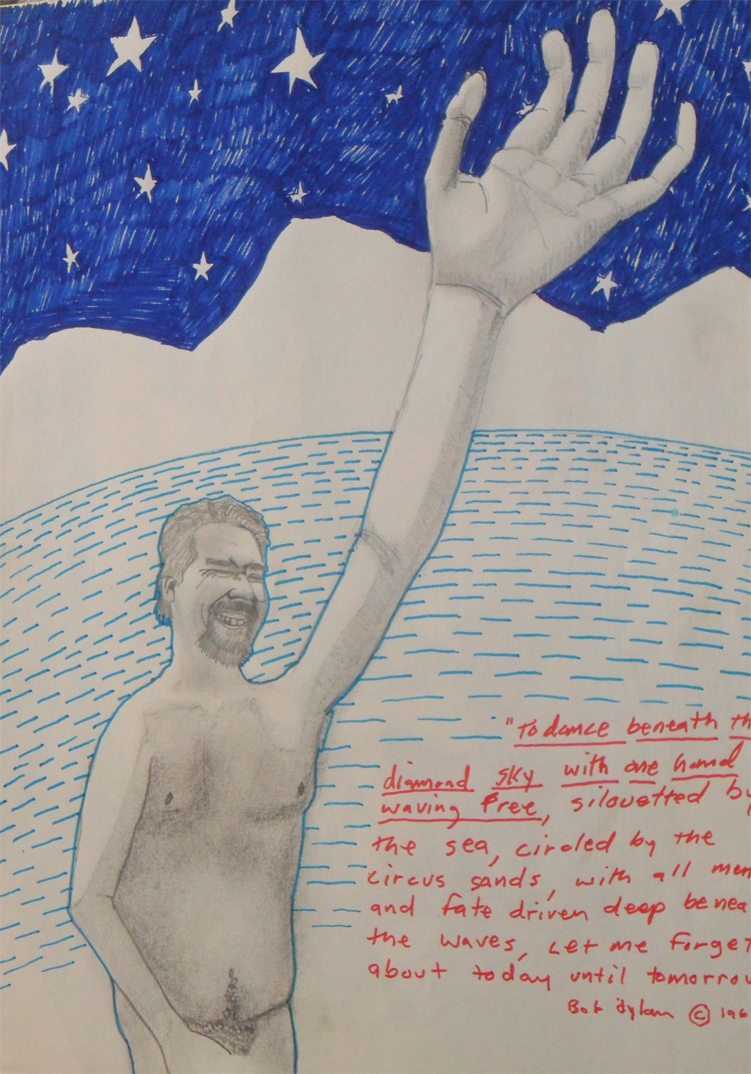 "To dance beneath th
diamond sky with one hand
waving free, silouetted by
the sea, circled by the
circus sands, with all mem
and fate driven deep benea
the waves, Let me forget
about today until tomorrow
Bob Dylan © 196